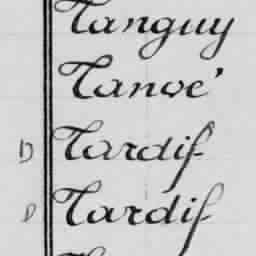 Tanguy
Tanoé
D Tardif
D Tardif